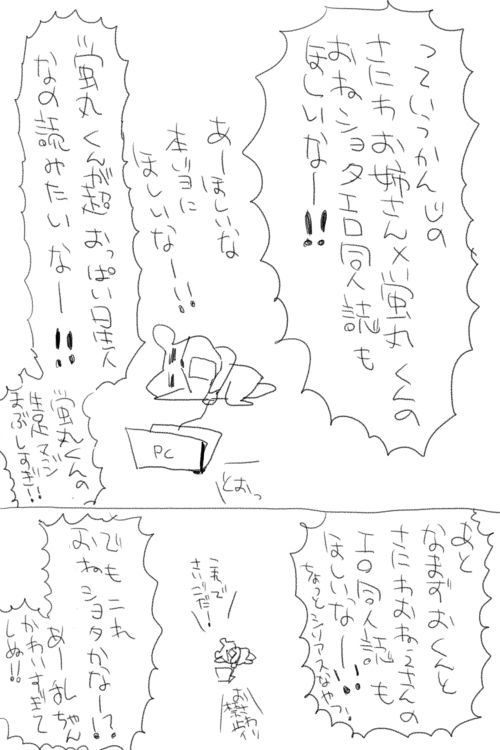 っていうかんじの
さにわお姉さん×蛍丸くんの
おねショタエロ同人誌も
ほしいなー!!
あーほしいな
本当に
ほしいなー!!
蛍丸くんが超おっぱい星人
なの読みたいなー!!
蛍丸くんの
生足マジ
まぶしすぎ!!
PC
とおっ
あと
なまずおくんと
さにわおねえさんの
エロ同人誌も
ほしいなー!!
ちょっとシリアスなやつ!
これで
さいごだ!
でもこれ
おねショタかなー!?
あー乱ちゃん
かわいすぎて
しぬ!!